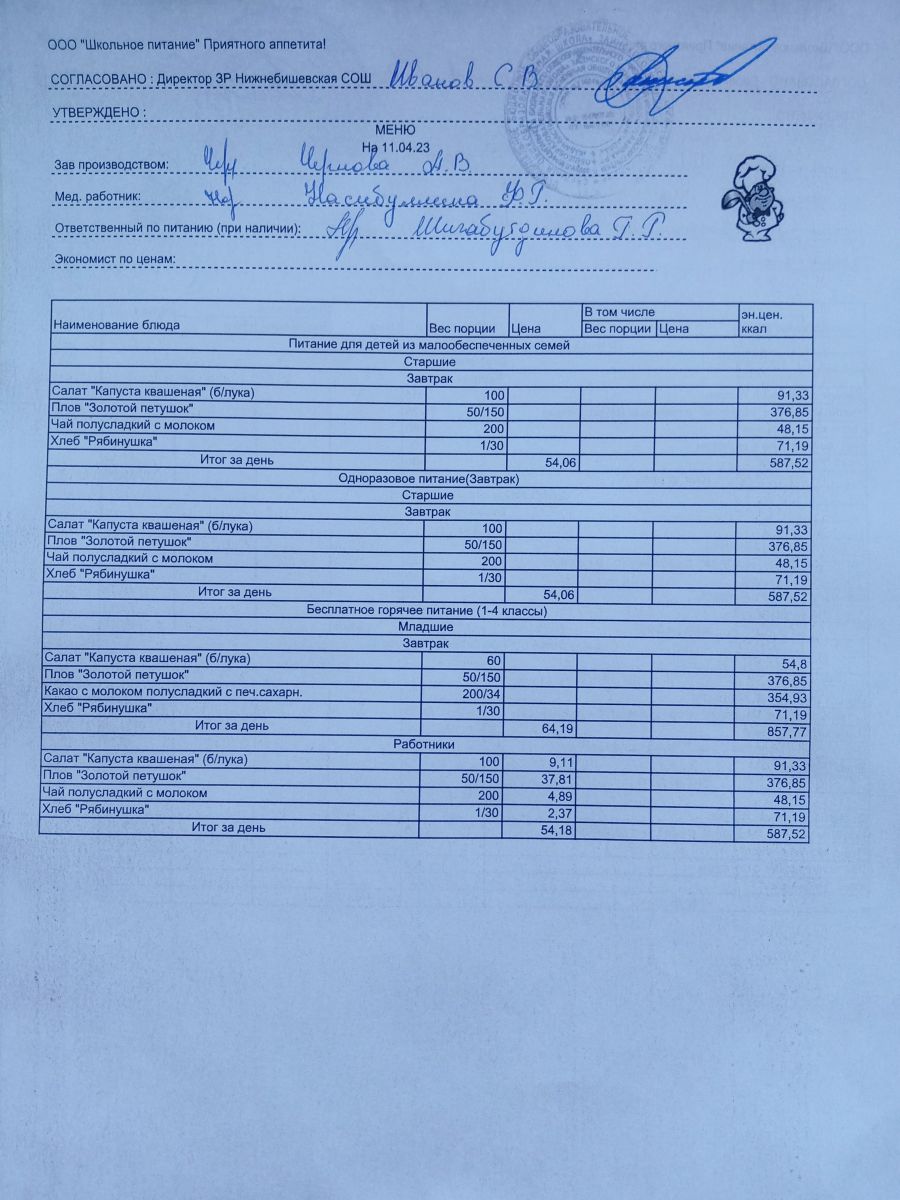 ООО "Школьное питание" Приятного аппетита!
СОГЛАСОВАНО : Директор ЗР Нижнебишевская СОШ Иванов С.В
УТВЕРЖДЕНО :
МЕНЮ
На 11.04.23
Зав производством: Чернова А.В.
Мед. работник: Насибуллина Ф.Г.
Ответственный по питанию (при наличии): Шигабутдинова Г.Р.
Экономист по ценам:
Наименование блюда Вес порции Цена В том числе Вес порции Цена эн.цен. ккал
Питание для детей из малообеспеченных семей
Старшие
Завтрак
Салат "Капуста квашеная" (б/лука) 100 91,33
Плов "Золотой петушок" 50/150 376,85
Чай полусладкий с молоком 200 48,15
Хлеб "Рябинушка" 1/30 71,19
Итог за день 54,06 587,52
Одноразовое питание(Завтрак)
Старшие
Завтрак
Салат "Капуста квашеная" (б/лука) 100 91,33
Плов "Золотой петушок" 50/150 376,85
Чай полусладкий с молоком 200 48,15
Хлеб "Рябинушка" 1/30 71,19
Итог за день 54,06 587,52
Бесплатное горячее питание (1-4 классы)
Младшие
Завтрак
Салат "Капуста квашеная" (б/лука) 60 54,8
Плов "Золотой петушок" 50/150 376,85
Какао с молоком полусладкий с печ.сахарн. 200/34 354,93
Хлеб "Рябинушка" 1/30 71,19
Итог за день 64,19 857,77
Работники
Салат "Капуста квашеная" (б/лука) 100 9,11 91,33
Плов "Золотой петушок" 50/150 37,81 376,85
Чай полусладкий с молоком 200 4,89 48,15
Хлеб "Рябинушка" 1/30 2,37 71,19
Итог за день 54,18 587,52